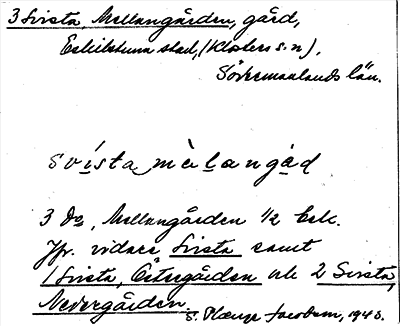 3 Svista, Mellangården, gård,
Eskilstuna stad, (Klosters s:n),
Södermanlands län.
svista mèlangåd
3 Do, Mellangården 1/2 Esk.
Jfr. vidare Svista samt
1 Svista, Östergården ok 2 Svista,
Nedergården
S. Plænge Jacobson, 1945.